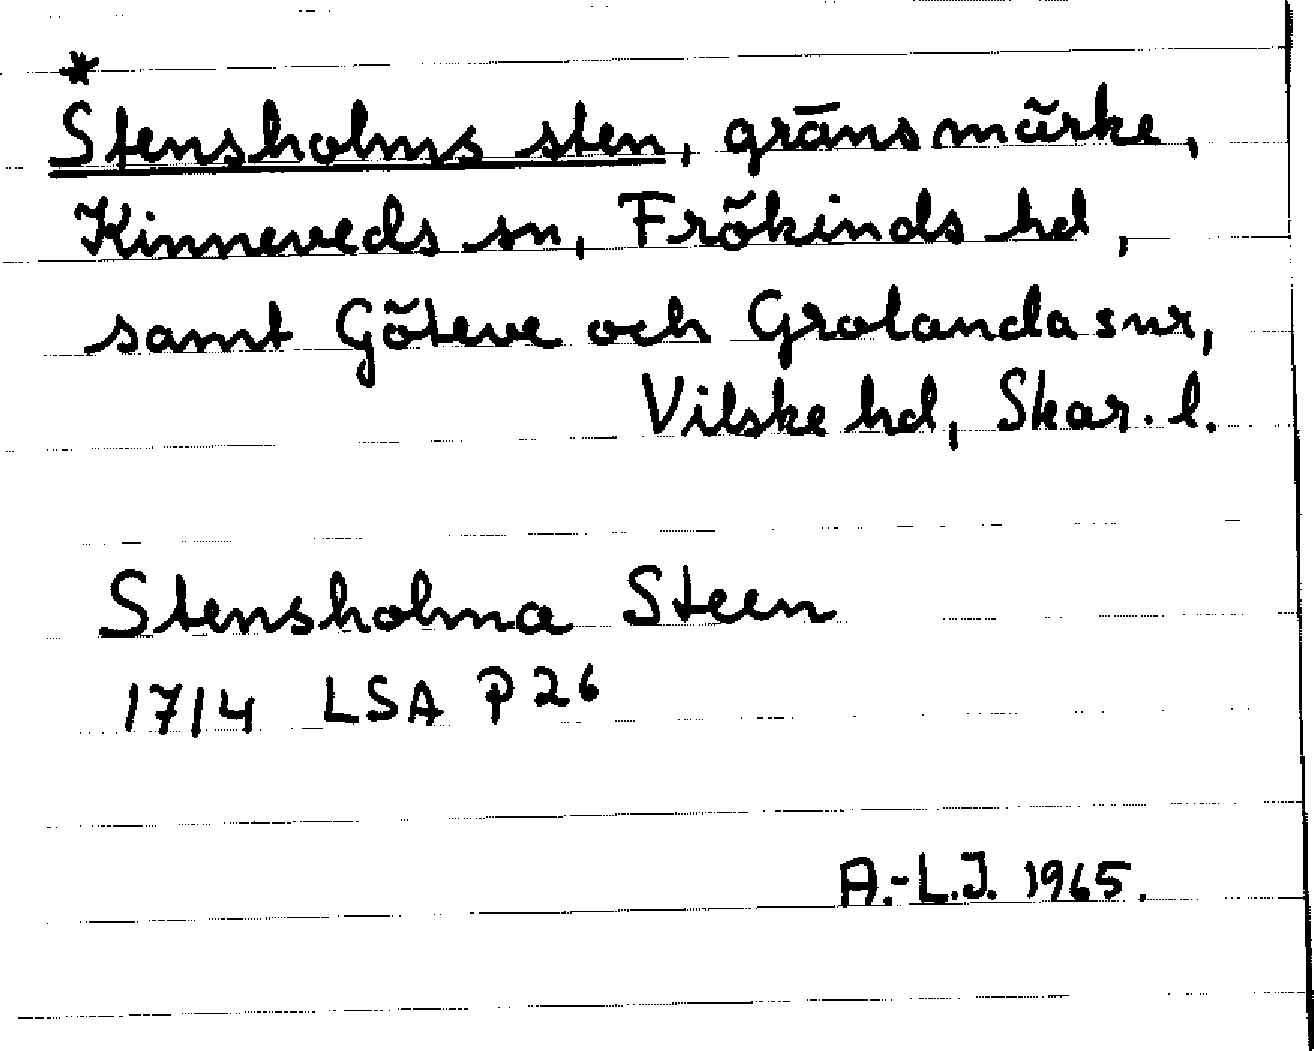 *
Stensholms sten, gränsmärke,
Kinneveds sn, Frökinds hd,
samt Göteve och Grolanda snr,
Vilske hd, Skar. l.
Stensholma Steen
1714 LSA P 26
A.-L.J. 1965.